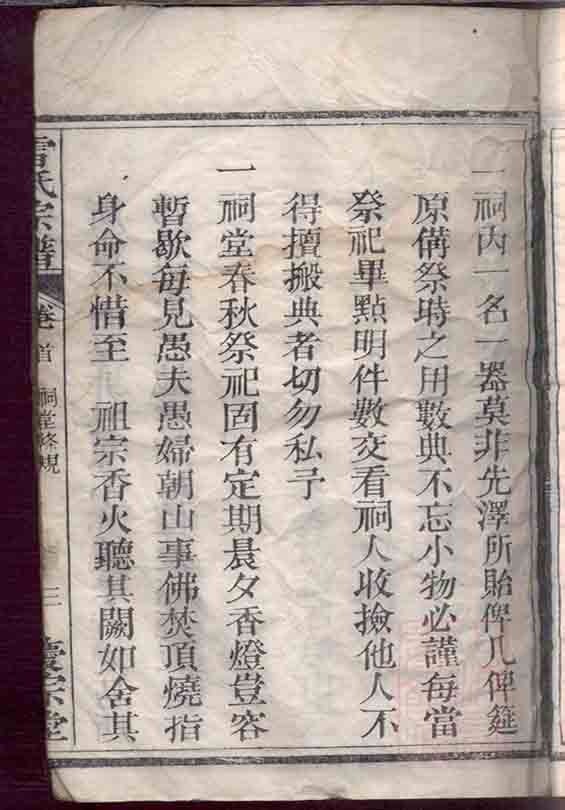 一祠內一名一器莫非先澤所貽俾几俾筵
原備祭時之用數典不忘小物必謹每當
祭祀畢點明件數交看祠人收撿他人不
得擅搬典者切勿私予
一祠堂春秋祭祀固有定期晨夕香燈豈容
暫歇每見愚夫愚婦朝山事佛焚頂燒指
身命不惜至 祖宗香火聽其闕如舍其
氏宗譜 卷首 祠堂條規 三 慶宗堂